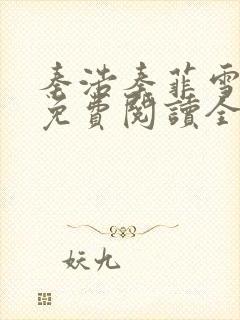 秦浩秦菲雪
免費閱讀全
妖九